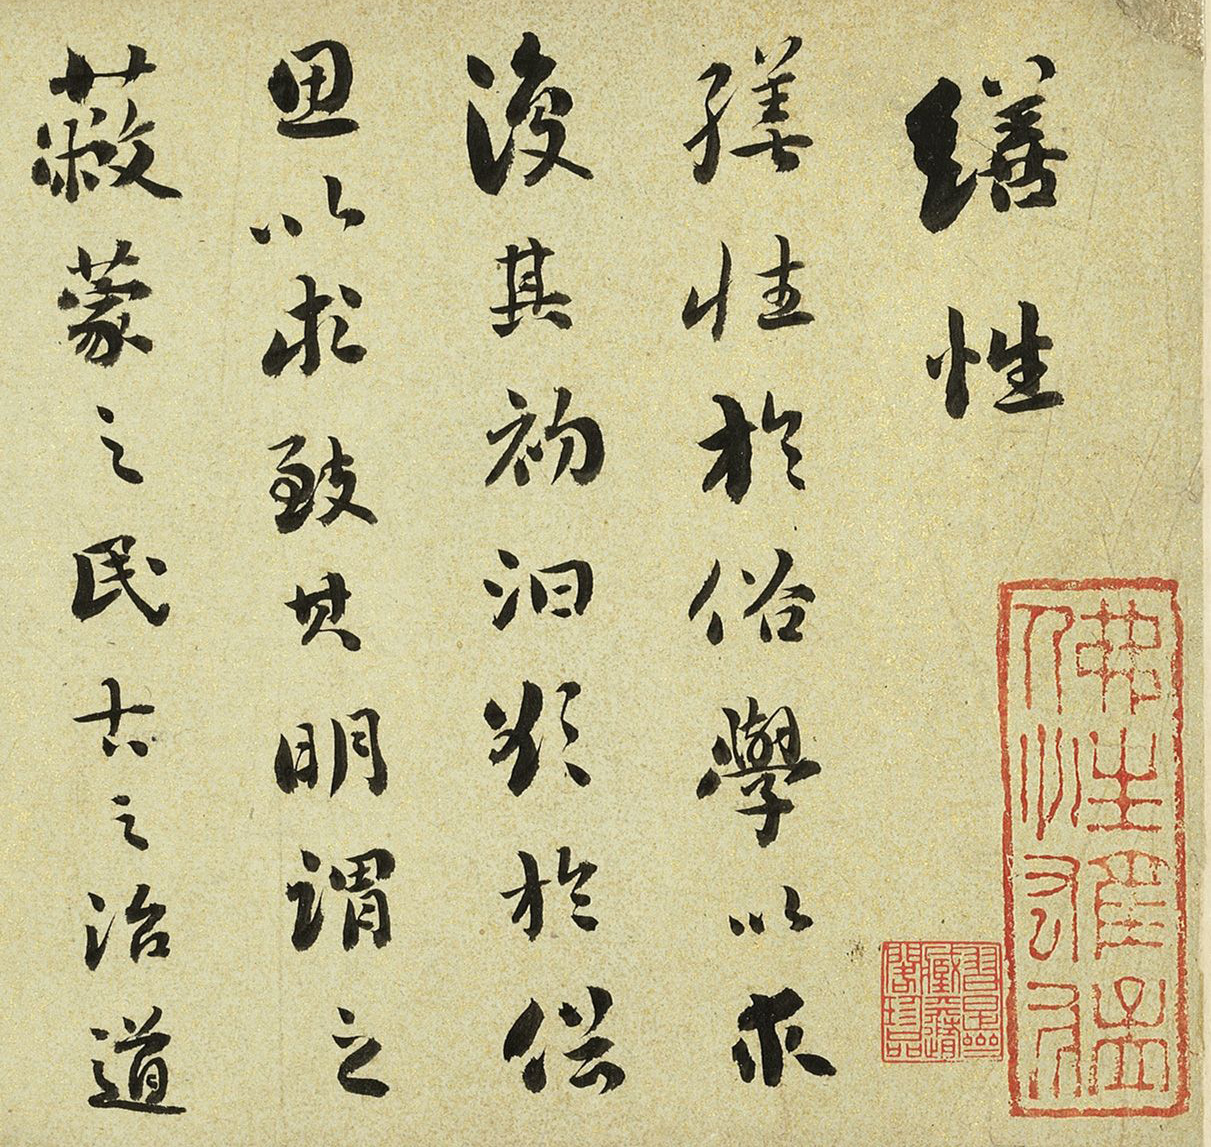 繕性
繕性於俗學以求
復其初汩欲於俗
思以求致其明謂之
蔽蒙之民古之治道